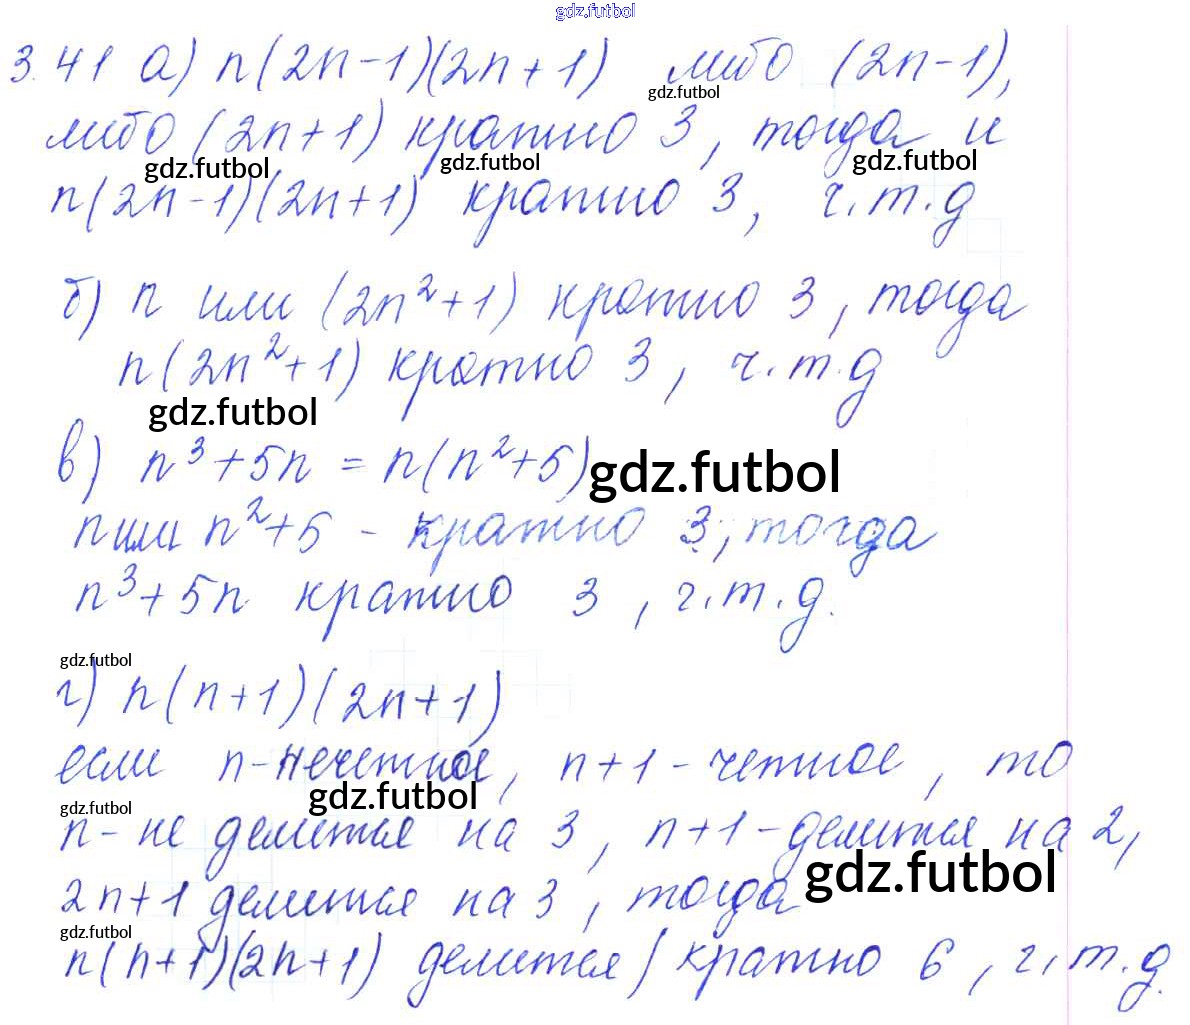 gdz.futbol
3.41 а) n(2n-1)(2n+1) либо (2n-1),
gdz.futbol
либо (2n+1) кратно 3, тогда и
gdz.futbol gdz.futbol gdz.futbol
n(2n-1)(2n+1) кратно 3, ч.т.д
б) n или (2n²+1) кратно 3, тогда
n(2n²+1) кратно 3, ч.т.д
gdz.futbol
в) n³+5n = n(n²+5)
gdz.futbol
n или n²+5 - кратно 3, тогда
n³+5n кратно 3, ч.т.д.
gdz.futbol
г) n(n+1)(2n+1)
если n-нечетное, n+1-четное, то
gdz.futbol gdz.futbol
n- не делится на 3, n+1-делится на 2,
gdz.futbol
2n+1 делится на 3, тогда
gdz.futbol
n(n+1)(2n+1) делится/кратно 6, ч.т.д.